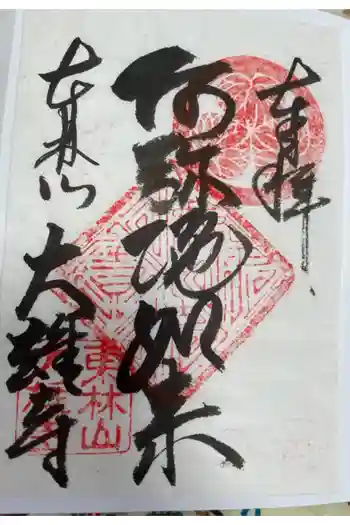 奉拝
阿弥陀如来
東林山 大雄寺
東林山